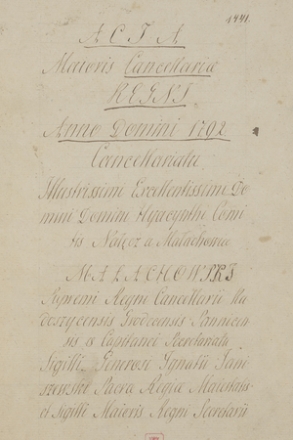 1941.
ACTA
Maioris Cancellariæ
REGNI
Anno Domini 1792
Cancellariatu
Illustrissimi Excellentissimi Do
mini Domini Hyacynthi Comi
tis Nałęcz a Małachowice
MAŁACHOWSKI
Supremi Regni Cancellarii Ra
doszycensis
sis & Capitanei Secretariatu
Sigilli Generosi Ignatii Jani
szewski Sacræ Regiæ Maiestatis
et Sigilli Maioris Regni Secretarii